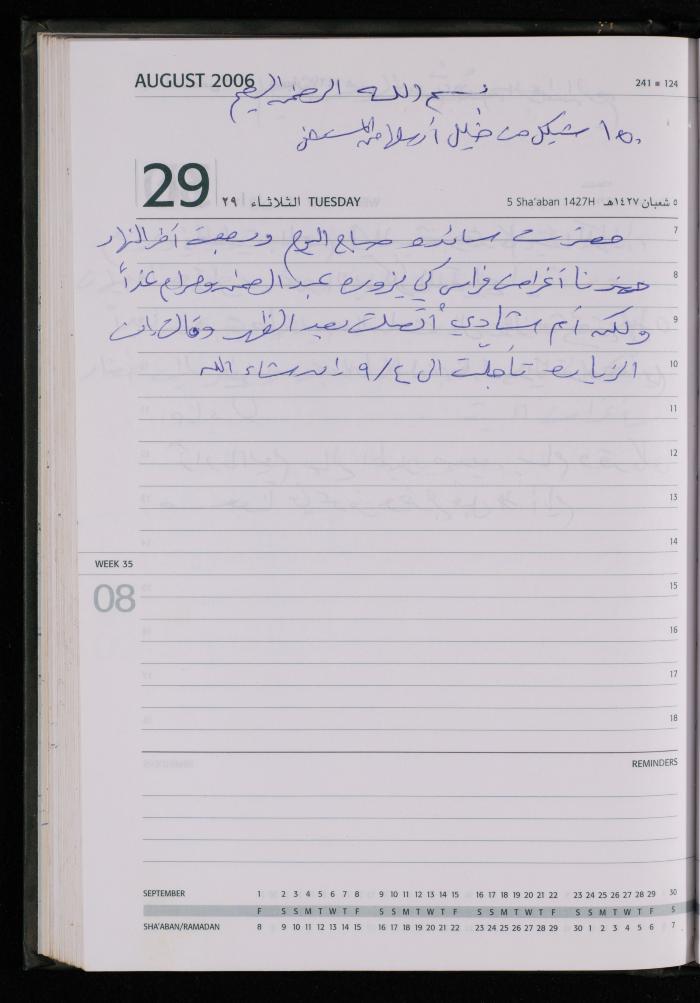 AUGUST 2006
241 ■ 124
بسم الله الرحمن الرحيم
١٥٠ شيكل من خليل
29 ٢٩ الثلاثاء TUESDAY
5 Sha'aban 1427H ٥ شعبان ١٤٢٧هـ
7 حضرت سائده صباح اليوم ورجعت آخر النهار
8 حضرنا أغراض فراس كي يزوره عبد الرحمن ومرام غداً
9 ولكن أم شادي أتصلت بعد الظهر وقالت بان
10 الزيارة تأجلت الى ٩/٤ إن شاء الله
11
12
13
14
WEEK 35
08
15
16
17
18
REMINDERS
SEPTEMBER 1 2 3 4 5 6 7 8 9 10 11 12 13 14 15 16 17 18 19 20 21 22 23 24 25 26 27 28 29 30
F S S M T W T F S S M T W T F S S M T W T F S S M T W T F S
SHA'ABAN/RAMADAN 8 9 10 11 12 13 14 15 16 17 18 19 20 21 22 23 24 25 26 27 28 29 30 1 2 3 4 5 6 7